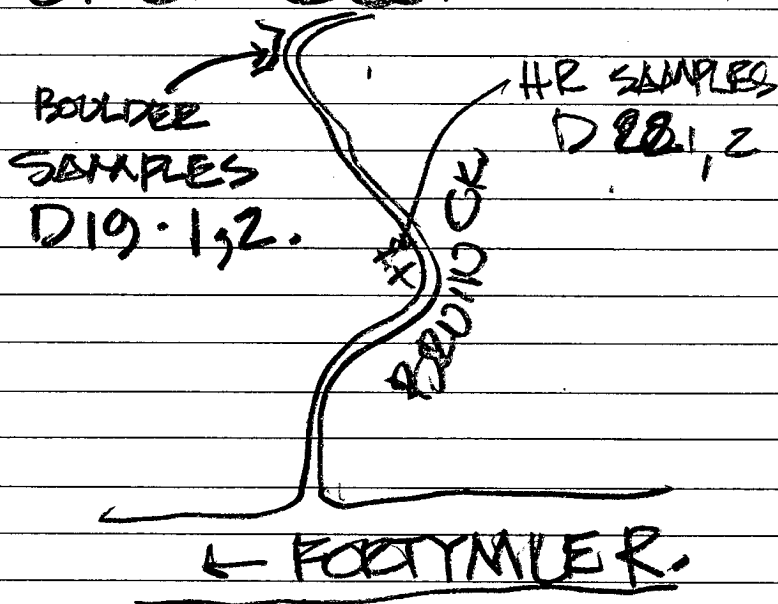 BOULDER
SAMPLES
D19.1,2.
HR SAMPLES
D 28.1, 2
BRUIN CK.
← FORTYMILE R.